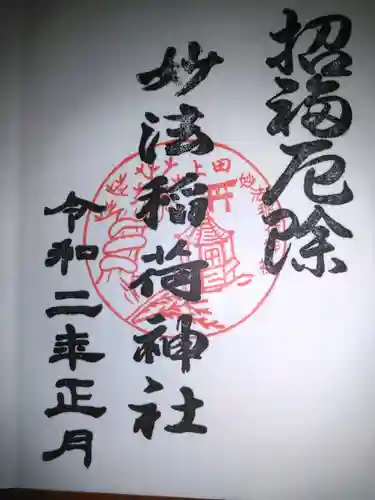 招福厄除
妙法稲荷神社
令和二年正月
上田